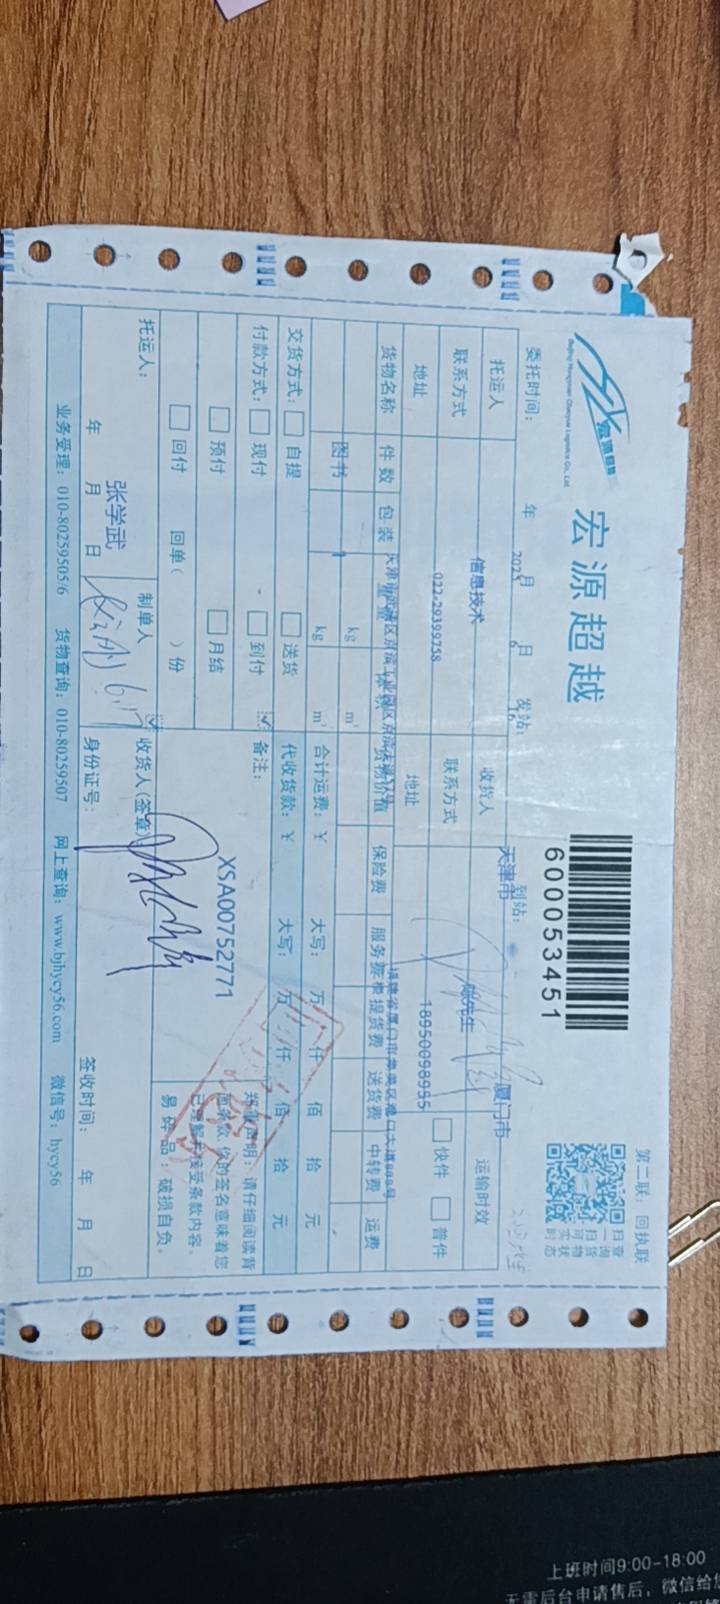 第二联：回执联
宏源超越
宏源超越
Beijing Hongyuan Chaoyue Logistics Co., Ltd.
6000053451
扫一扫可实时
查询货物状态
委托时间： 年 月 日 发站： 天津市 到站： 厦门市
托运人 信息技术 收货人 运输时效
联系方式 022-29399258 联系方式 18950098955 快件 普件
地址 地址
货物名称 件数 包装 重量 体积 货物价值 保险费 服务费 提货费 送货费 中转费 运费
图书 1 kg m³
kg m³ 合计运费：￥ 大写： 万 仟 佰 拾 元
交货方式： 自提 送货 代收货款：￥ 大写： 万 仟 佰 拾 元
付款方式： 现付 到付 备注：
预付 月结
XSA00752771
回付 回单（ ）份
郑重声明：请仔细阅读背
面条款，您的签名意味着您
已理解并接受条款内容。
易碎品：破损自负。
托运人： 张学武 制单人 收货人(签章)
年 月 日 身份证号： 签收时间： 年 月 日
业务受理：010-80259505/6 货物查询：010-80259507 网上查询：www.bjhycy56.com 微信号：hycy56
上班时间9:00-18:00